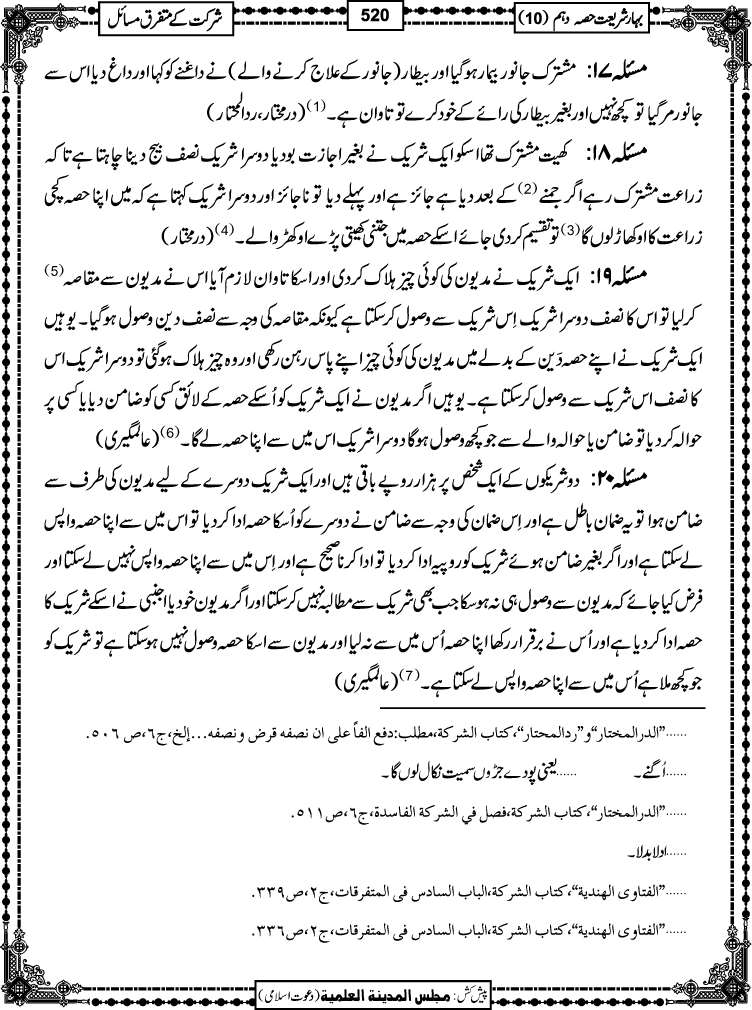 بہارِ شریعت حصہ دہم (10)
520
شرکت کے متفرق مسائل
مسئلہ ۱۷: مشترک جانور بیمار ہوگیا اور بیطار (جانور کے علاج کرنے والے) نے داغنے کو کہا اور داغ دیا اس سے
جانور مرگیا تو کچھ نہیں اور بغیر بیطار کی رائے کے خود کرے تو تاوان ہے۔(1) (درمختار، ردالمحتار)
مسئلہ ۱۸: کھیت مشترک تھا اسکو ایک شریک نے بغیر اجازت بو دیا دوسرا شریک نصف بیج دینا چاہتا ہے تاکہ
زراعت مشترک رہے اگر جمنے(2) کے بعد دیا ہے جائز ہے اور پہلے دیا تو ناجائز اور دوسرا شریک کہتا ہے کہ میں اپنا حصہ کچی
زراعت کا اوکھاڑ لوں گا(3) تو تقسیم کردی جائے اسکے حصہ میں جتنی کھیتی پڑے اوکھڑوالے۔(4) (درمختار)
مسئلہ ۱۹: ایک شریک نے مدیون کی کوئی چیز ہلاک کردی اور اسکا تاوان لازم آیا اس نے مدیون سے مقاصہ(5)
کرلیا تو اس کا نصف دوسرا شریک اِس شریک سے وصول کرسکتا ہے کیونکہ مقاصہ کی وجہ سے نصف دین وصول ہوگیا۔ یوہیں
ایک شریک نے اپنے حصہ دَین کے بدلے میں مدیون کی کوئی چیز اپنے پاس رہن رکھی اور وہ چیز ہلاک ہوگئی تو دوسرا شریک اس
کا نصف اس شریک سے وصول کرسکتا ہے۔ یوہیں اگر مدیون نے ایک شریک کو اُسکے حصہ کے لائق کسی کو ضامن دیا یا کسی پر
حوالہ کردیا تو ضامن یا حوالہ والے سے جو کچھ وصول ہوگا دوسرا شریک اس میں سے اپنا حصہ لے گا۔(6) (عالمگیری)
مسئلہ ۲۰: دو شریکوں کے ایک شخص پر ہزار روپے باقی ہیں اور ایک شریک دوسرے کے لیے مدیون کی طرف سے
ضامن ہوا تو یہ ضمان باطل ہے اور اِس ضمان کی وجہ سے ضامن نے دوسرے کو اُسکا حصہ ادا کردیا تو اس میں سے اپنا حصہ واپس
لے سکتا ہے اور اگر بغیر ضامن ہوئے شریک کو روپیہ ادا کردیا تو ادا کرنا صحیح ہے اور اِس میں سے اپنا حصہ واپس نہیں لے سکتا اور
فرض کیا جائے کہ مدیون سے وصول ہی نہ ہوسکا جب بھی شریک سے مطالبہ نہیں کرسکتا اور اگر مدیون خود یا اجنبی نے اسکے شریک کا
حصہ ادا کردیا ہے اور اُس نے برقرار رکھا اپنا حصہ اُس میں سے نہ لیا اور مدیون سے اسکا حصہ وصول نہیں ہوسکتا ہے تو شریک کو
جو کچھ ملا ہے اُس میں سے اپنا حصہ واپس لے سکتا ہے۔(7) (عالمگیری)
......"الدرالمختار" و"ردالمحتار"، کتاب الشرکة، مطلب: دفع الفاً علی ان نصفه قرض و نصفه...إلخ، ج٦، ص ٥٠٦.
......اُگنے۔ ......یعنی پودے جڑوں سمیت نکال لوں گا۔
......"الدرالمختار"، کتاب الشرکة، فصل في الشرکة الفاسدة، ج٦، ص٥١١.
......ادلا بدلا۔
......"الفتاوی الهندیة"، کتاب الشرکة، الباب السادس فی المتفرقات، ج٢، ص٣٣٩.
......"الفتاوی الهندیة"، کتاب الشرکة، الباب السادس فی المتفرقات، ج٢، ص٣٣٦.
پیش کش: مجلس المدینة العلمیة (دعوت اسلامی)